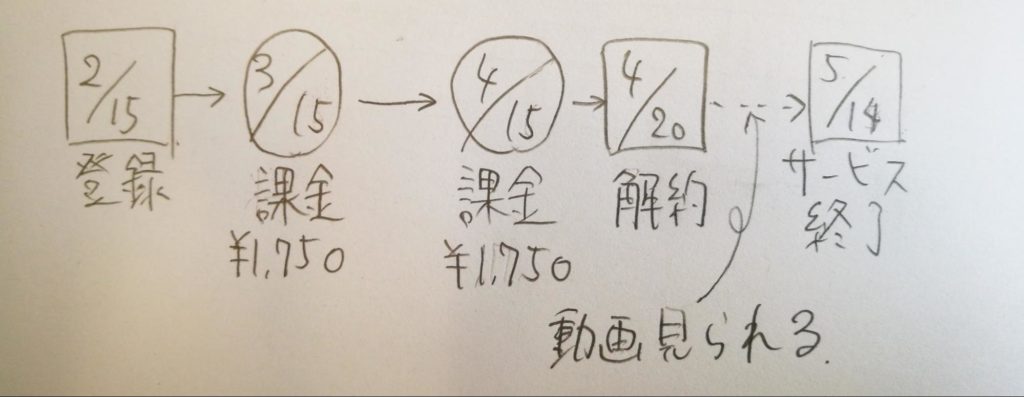 2/15
登録
3/15
課金
¥1,750
4/15
課金
¥1,750
4/20
解約
5/14
サービス
終了
動画見られる.